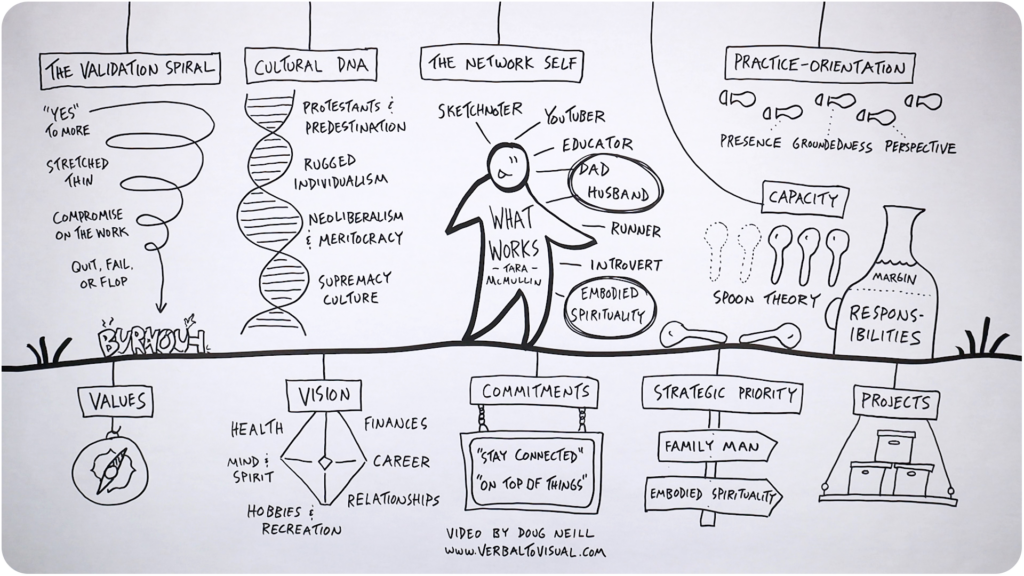 THE VALIDATION SPIRAL
"YES"
TO MORE
STRETCHED
THIN
COMPROMISE
ON THE WORK
QUIT, FAIL,
OR FLOP
BURNOUT
CULTURAL DNA
PROTESTANTS &
PREDESTINATION
RUGGED
INDIVIDUALISM
NEOLIBERALISM
& MERITOCRACY
SUPREMACY
CULTURE
THE NETWORK SELF
SKETCHNOTER
YOUTUBER
EDUCATOR
DAD
HUSBAND
RUNNER
INTROVERT
EMBODIED
SPIRITUALITY
WHAT
WORKS
- TARA -
MCMULLIN
PRACTICE-ORIENTATION
PRESENCE GROUNDEDNESS PERSPECTIVE
CAPACITY
SPOON THEORY
MARGIN
RESPONS-
IBILITIES
VALUES
VISION
HEALTH
FINANCES
MIND &
SPIRIT
CAREER
HOBBIES &
RECREATION
RELATIONSHIPS
COMMITMENTS
"STAY CONNECTED"
"ON TOP OF THINGS"
STRATEGIC PRIORITY
FAMILY MAN
EMBODIED SPIRITUALITY
PROJECTS
VIDEO BY DOUG NEILL
WWW.VERBALTOVISUAL.COM